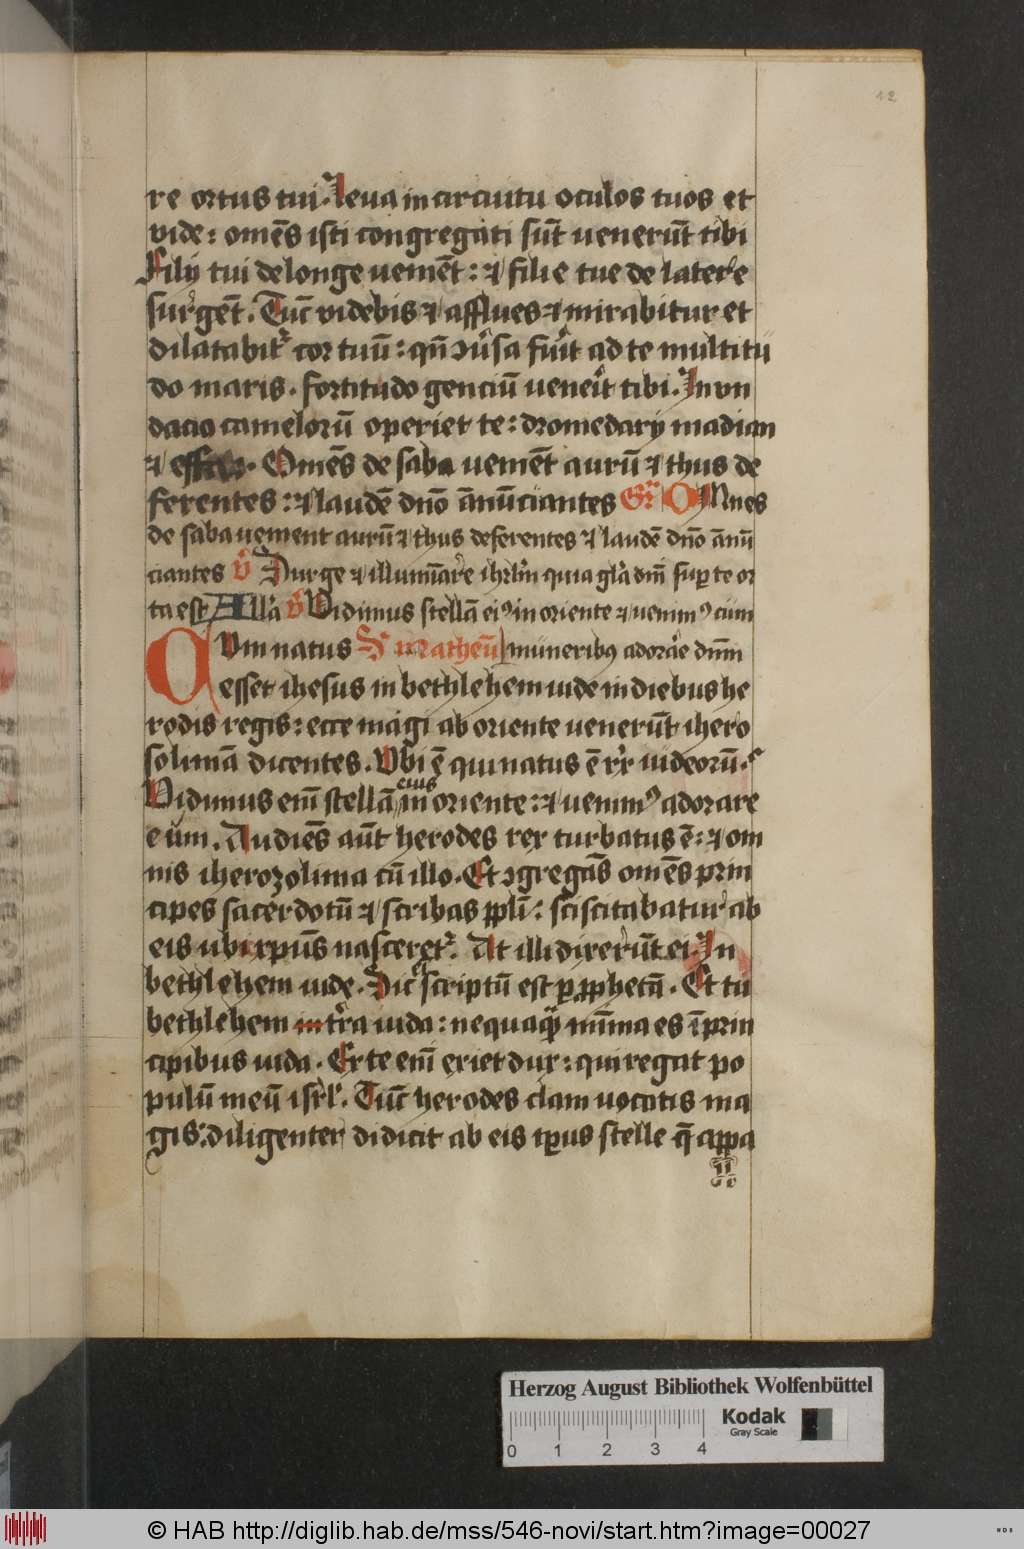 12
re ortus tui. Leua in circuitu oculos tuos et
vide: om̄es isti congregati sūt venerūt tibi
Filij tui de longe veniēt: ⁊ filie tue de latere
surgēt. Tūc videbis ⁊ afflues ⁊ mirabitur et
dilatabit᷑ cor tuū: qn̄ ↄu͛sa fu͛it ad te multitu
do maris. fortitudo genciū vene͛it tibi. Inun
dacio camelorū operiet te: dromedarij madian
⁊ effa. Om̄es de saba veniēt aurū ⁊ thus de
ferentes: ⁊ laudē dn̄o ānūciantes Gr̄ OMnes
de saba venient aurū ⁊ thus deferentes ⁊ laudē dn̄o ānū
ciantes v̄ Surge ⁊ illumīare ihrl̄m quia gl̄a dn̄i sup̱ te or
ta est All̄a v̄ Vidimus stellā eiꝰ in oriente ⁊ venimꝰ cum
CVm natus S. Matheū muneribꝰ adorare dn̄m
esset ihesus in bethlehem iude in diebus he
rodis regis: ecce magi ab oriente venerūt ihero
solimā dicentes. Vbi ē qui natus ē rex iudeorū.
Vidimus em̄ stellā eius in oriente: ⁊ venimꝰ adorare
eum. Audiēs aūt herodes rex turbatus ē: ⁊ om
nis iherozolima cū illo. Et ↄgregās om̄es prin
cipes sacerdotū ⁊ scribas ppl̄i: sciscitabatur ab
eis ubi xp̄us nasceret᷑. At illi dixerūt ei. In
bethlehem iude. Sic et scriptū est p̱ ꝓphetā. Et tu
bethlehem in tr̄a iuda: nequaq̄ mīma es ī prin
cipibus iuda. Ex te em̄ exiet dux: qui regat po
pulū meū isrl̄. Tūc herodes clam vocatis ma
gis: diligenter didicit ab eis tp̱us stelle q̄ appa
Herzog August Bibliothek Wolfenbüttel
Kodak
Gray Scale
0 1 2 3 4
© HAB http://diglib.hab.de/mss/546-novi/start.htm?image=00027